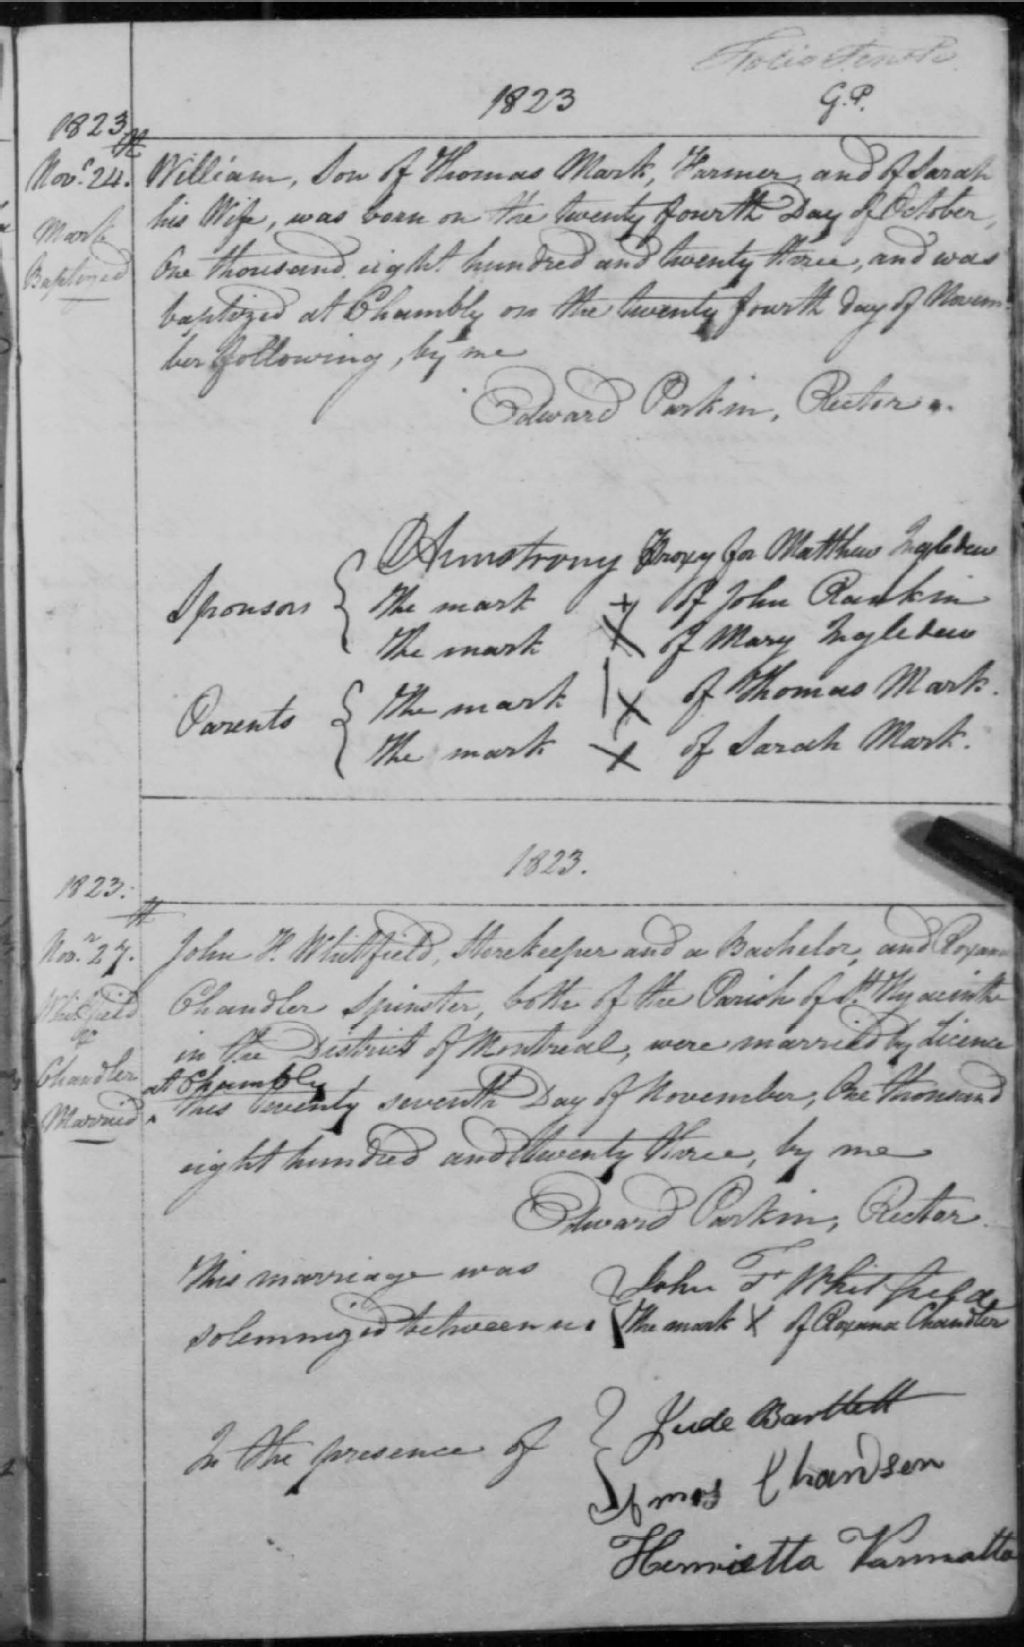 Folio Tenth
1823
G.P.
1823
Novr. 24.
Mark
Baptized
William, Son of Thomas Mark, Farmer, and of Sarah
his Wife, was born on the twenty fourth Day of October,
One thousand eight hundred and twenty three, and was
baptized at Chambly on the twenty fourth day of Novem-
ber following, by me
Edward Parkin, Rector.
Sponsors
Armstrong Proxy for Matthew Ingledew
The mark X of John Rankin
The mark X of Mary Ingledew
Parents
The mark X of Thomas Mark.
The mark X of Sarah Mark.
1823.
1823.
Novr. 27.
Whitfield
&
Chandler
Married
John F. Whitfield, Storekeeper and a Bachelor, and Roxana
Chandler Spinster, both of the Parish of St. Hyacinthe
in the District of Montreal, were married by Licence
at Chambly
this twenty seventh Day of November, One thousand
eight hundred and twenty three, by me
Edward Parkin, Rector.
This marriage was
solemnized between us
John F Whitfield
The mark X of Roxana Chandler
In the presence of
Jude Bartlett
Amos
Henrietta